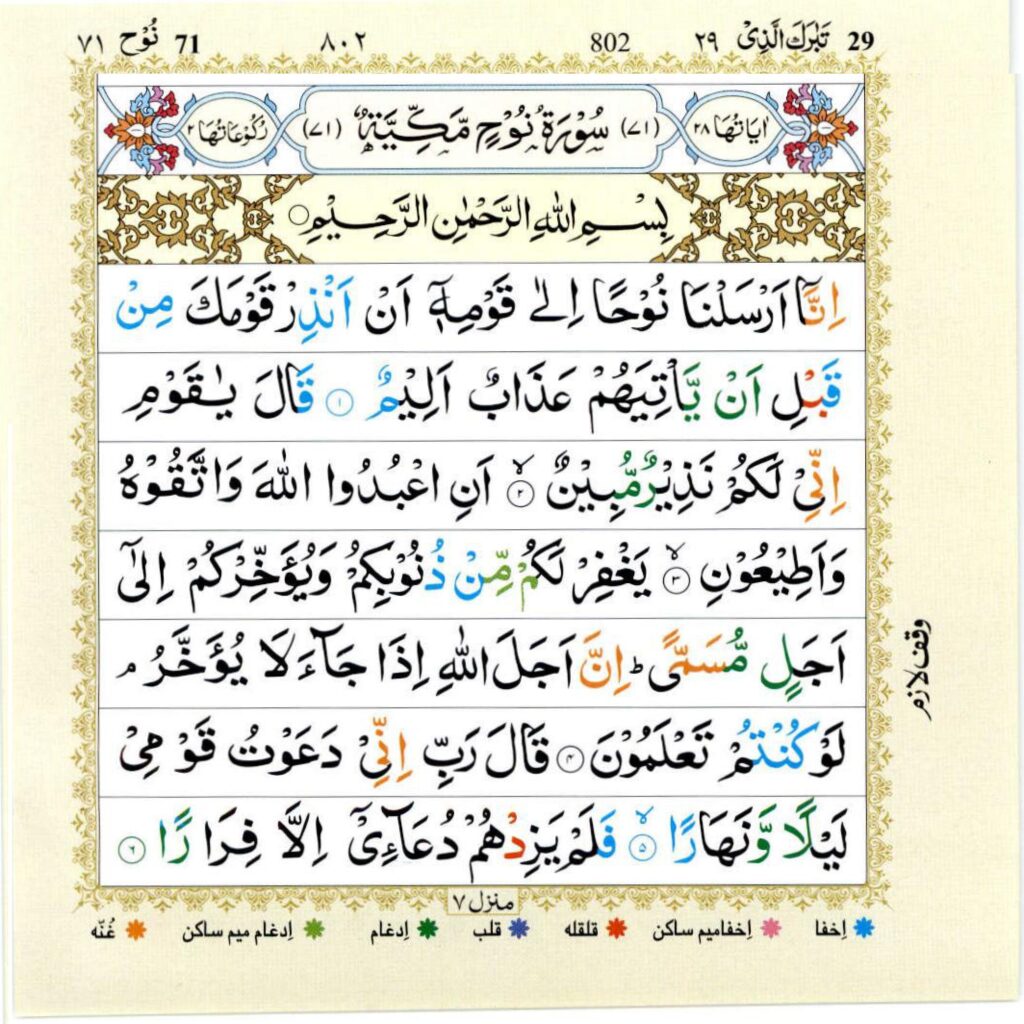 29 تَبٰرَكَ الَّذِیْ ٢٩ 802 ٨٠٢ 71 نُوْح ٧١
اٰيَاتُهَا ٢٨ (٧١) سُوْرَةُ نُوْحٍ مَّكِّيَّةٌ (٧١) رُكُوْعَاتُهَا ٢
بِسْمِ اللّٰهِ الرَّحْمٰنِ الرَّحِيْمِ ○
اِنَّاۤ اَرْسَلْنَا نُوْحًا اِلٰى قَوْمِهٖۤ اَنْ اَنْذِرْ قَوْمَكَ مِنْ
قَبْلِ اَنْ يَّاْتِيَهُمْ عَذَابٌ اَلِيْمٌ ۝١ قَالَ يٰقَوْمِ
اِنِّيْ لَكُمْ نَذِيْرٌ مُّبِيْنٌ ۝٢ۙ اَنِ اعْبُدُوا اللّٰهَ وَاتَّقُوْهُ
وَاَطِيْعُوْنِ ۝٣ۙ يَغْفِرْ لَكُمْ مِّنْ ذُنُوْبِكُمْ وَيُؤَخِّرْكُمْ اِلٰۤى
اَجَلٍ مُّسَمًّى ؕ اِنَّ اَجَلَ اللّٰهِ اِذَا جَآءَ لَا يُؤَخَّرُ ۘ
لَوْ كُنْتُمْ تَعْلَمُوْنَ ۝٤ قَالَ رَبِّ اِنِّيْ دَعَوْتُ قَوْمِيْ
لَيْلًا وَّنَهَارًا ۝٥ۙ فَلَمْ يَزِدْهُمْ دُعَآءِيْۤ اِلَّا فِرَارًا ۝٦
وقف لازم
منزل ٧
اِخفا اِخفامیم ساکن قلقله قلب اِدغام اِدغام میم ساکن غُنّه